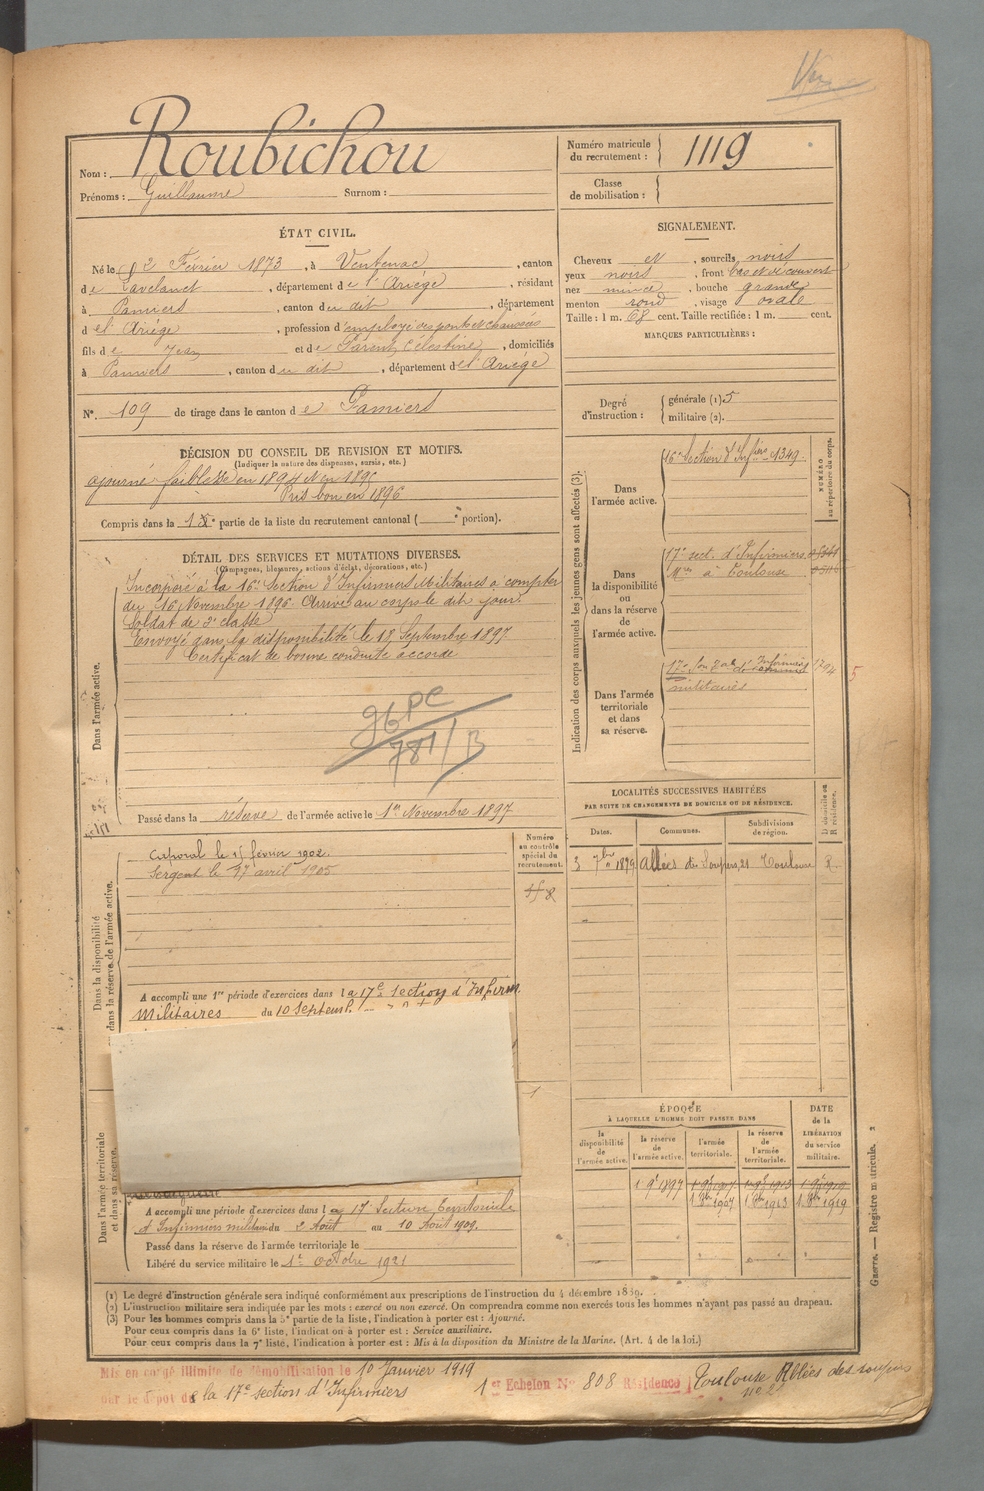 Nom : Roubichou
Prénoms : Guillaume Surnom :
Numéro matricule du recrutement : 1119
Classe de mobilisation :
ÉTAT CIVIL.
Né le 2 Février 1873, à Ventenac, canton
de Lavelanet, département de l'Ariége, résidant
à Pamiers, canton du dit, département
de l'Ariége, profession d'employé des ponts et chaussées
fils de Jean et de Parent Célestine, domiciliés
à Pamiers, canton du dit, département de l'Ariége
N° 109 de tirage dans le canton de Pamiers
SIGNALEMENT.
Cheveux et, sourcils noirs
yeux noirs, front bas et découvert
nez mince, bouche grande
menton rond, visage ovale
Taille : 1 m. 68 cent. Taille rectifiée : 1 m. cent.
MARQUES PARTICULIÈRES :
Degré d'instruction : générale (1) 5
militaire (2).
DÉCISION DU CONSEIL DE REVISION ET MOTIFS.
(Indiquer la nature des dispenses, sursis, etc.)
ajourné faiblesse en 1894 et en 1895
Pris bon en 1896
Compris dans la partie de la liste du recrutement cantonal ( portion).
DÉTAIL DES SERVICES ET MUTATIONS DIVERSES.
(Campagnes, blessures, actions d'éclat, décorations, etc.)
Dans l'armée active.
Incorporé à la 16e Section d'Infirmiers Militaires à compter
du 16 Novembre 1896. Arrivé au corps le dit jour.
Soldat de 2e classe
Envoyé dans la disponibilité le 18 Septembre 1897
Certificat de bonne conduite accordé
96 PC
781/B
Passé dans la réserve de l'armée active le 1er Novembre 1897
Indication des corps auxquels les jeunes gens sont affectés (3).
NUMÉRO au répertoire du corps.
Dans l'armée active.
16e Section d'Infiers 1349
Dans la disponibilité ou dans la réserve de l'armée active.
17e sect. d'Infirmiers
Mres à Toulouse
Dans l'armée territoriale et dans sa réserve.
17e Son Rale d'Infirmiers
militaires
1294
5
LOCALITÉS SUCCESSIVES HABITÉES
PAR SUITE DE CHANGEMENTS DE DOMICILE OU DE RÉSIDENCE.
Dates. Communes. Subdivisions de région. D domicile ou R résidence.
3 7bre 1899 Allées des Soupirs, 21 Toulouse R
Dans la disponibilité et dans la réserve de l'armée active.
Numéro au contrôle spécial du recrutement.
Caporal le 15 février 1902.
Sergent le 17 avril 1905
A accompli une 1re période d'exercices dans la 17e Section d'Infirm.
Militaires du 10 Septemb.
ÉPOQUE
À LAQUELLE L'HOMME DOIT PASSER DANS
la disponibilité de l'armée active. la réserve de l'armée active. l'armée territoriale. la réserve de l'armée territoriale. DATE de la LIBÉRATION du service militaire.
1 9e 1897
1 8bre 1907 1 8bre 1913 1 8bre 1919
Dans l'armée territoriale et dans sa réserve.
A accompli une période d'exercices dans la 17e Section Territoriale
d'Infirmiers militaires du 2 Août au 10 Août 1909.
Passé dans la réserve de l'armée territoriale le
Libéré du service militaire le 1er octobre 1921
(1) Le degré d'instruction générale sera indiqué conformément aux prescriptions de l'instruction du 4 décembre 1889.
(2) L'instruction militaire sera indiquée par les mots : exercé ou non exercé. On comprendra comme non exercés tous les hommes n'ayant pas passé au drapeau.
(3) Pour les hommes compris dans la 5e partie de la liste, l'indication à porter est : Ajourné.
Pour ceux compris dans la 6e liste, l'indication à porter est : Service auxiliaire.
Pour ceux compris dans la 7e liste, l'indication à porter est : Mis à la disposition du Ministre de la Marine. (Art. 4 de la loi.)
Guerre. — Registre matricule. 2
Mis en congé illimité de démobilisation le 10 Janvier 1919
par le dépôt de la 17e section d'Infirmiers
1er Echelon No 808 Résidence Toulouse Allées des soupirs